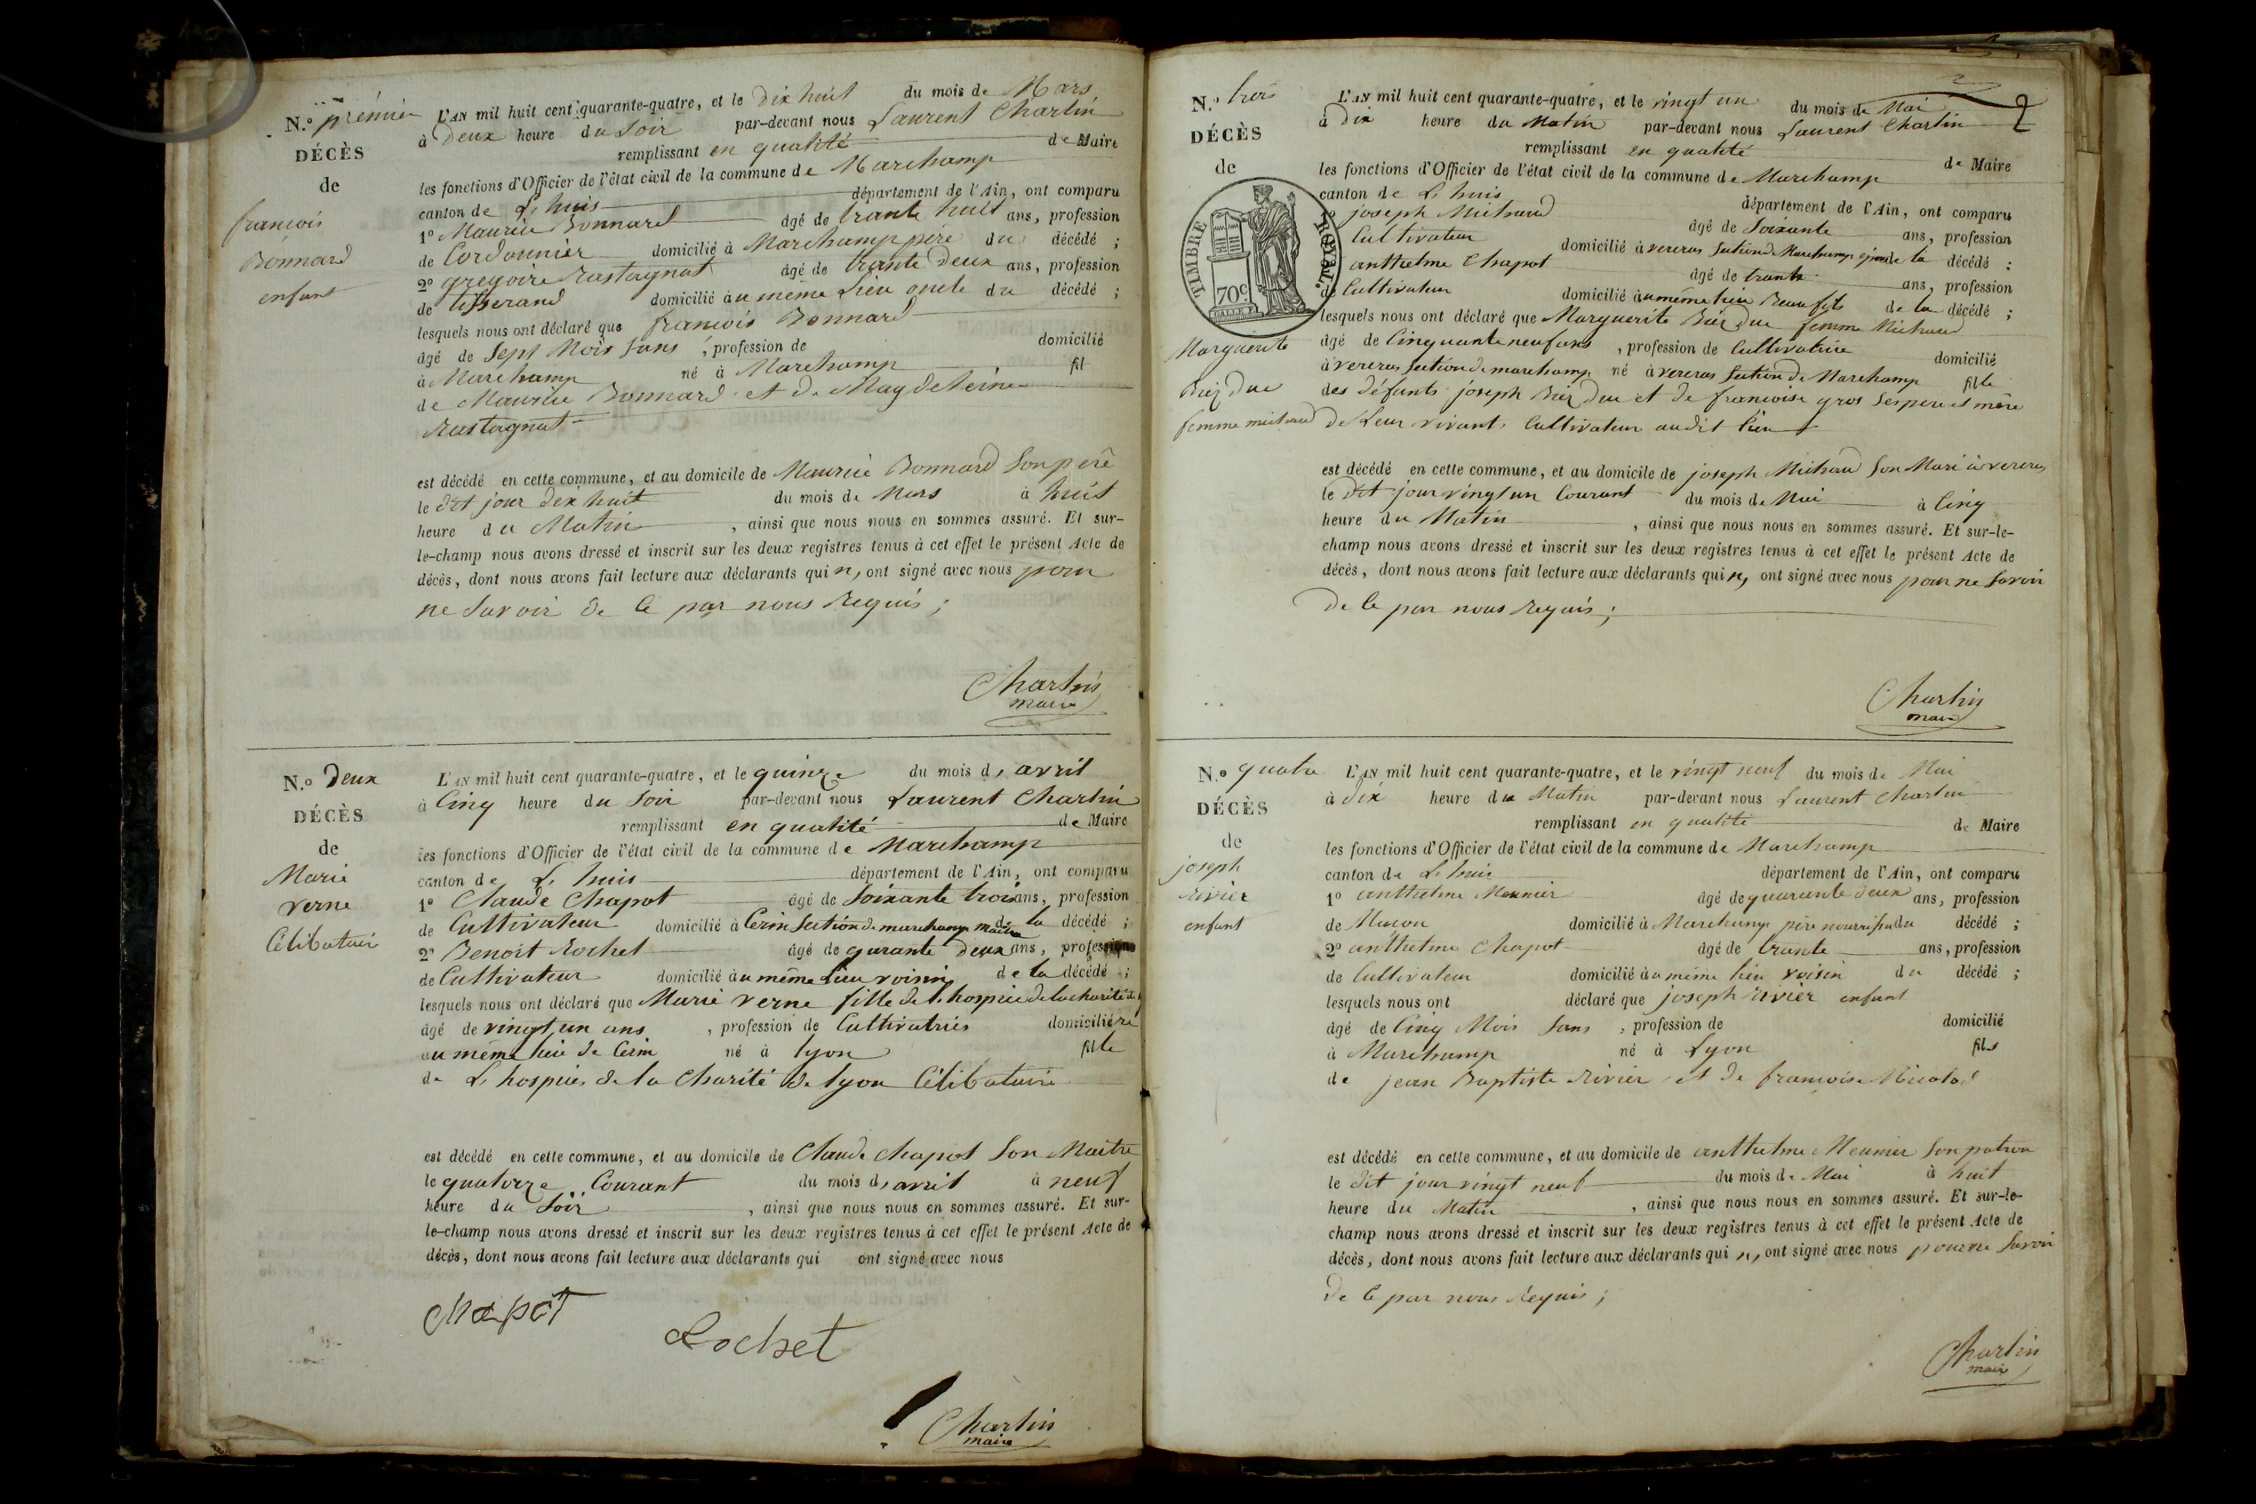 N.º premier
DÉCÈS
de
françois
Bonnard
enfant
L'AN mil huit cent quarante-quatre, et le dix huit du mois de Mars
à Deux heure du Soir par-devant nous Laurent Charlin
remplissant en qualité de Maire
les fonctions d'Officier de l'état civil de la commune de Marchamp
canton de L'huis département de l'Ain, ont comparu
1º Maurice Bonnard âgé de trante huit ans, profession
de Cordonnier domicilié à Marchamp père du décédé ;
2º gregoire Rastagnat âgé de trante Deux ans, profession
de tisserand domicilié au même Lieu oncle du décédé ;
lesquels nous ont déclaré que françois Bonnard
âgé de Sept Mois Sans , profession de domicilié
à Marchamp né à Marchamp fil
de Maurice Bonnard et de Magdeleine
Rastagnat
est décédé en cette commune, et au domicile de Maurice Bonnard Son père
le dit jour dix huit du mois de Mars à huit
heure du Matin , ainsi que nous nous en sommes assuré. Et sur-
le-champ nous avons dressé et inscrit sur les deux registres tenus à cet effet le présent Acte de
décès, dont nous avons fait lecture aux déclarants qui n, ont signé avec nous pour
ne Savoir de Ce par nous Requis ;
Charlin
maire
N.º Deux
DÉCÈS
de
Marie
verne
Célibataire
L'AN mil huit cent quarante-quatre, et le quinze du mois d, avril
à Cinq heure du Soir par-devant nous Laurent Charlin
remplissant en qualité de Maire
les fonctions d'Officier de l'état civil de la commune de Marchamp
canton de L'huis département de l'Ain, ont comparu
1º Claude Chapot âgé de Soixante trois ans, profession
de Cultivateur domicilié à Cerin Section de marchamp Maitre de la décédé ;
2º Benoit Rochet âgé de qurante Deux ans, profession
de Cultivateur domicilié au même Lieu voisin de la décédé ;
lesquels nous ont déclaré que Marie verne fille de l, hospice de la charité de
âgé de vingt un ans , profession de Cultivatrice domiciliére
au même lieu de Cerin né à lyon fille
de L, hospice de la Charité de lyon Célibataire
est décédé en cette commune, et au domicile de Claude Chapot Son Maitre
le quatorze Courant du mois d, avril à neuf
heure du Soir , ainsi que nous nous en sommes assuré. Et sur-
le-champ nous avons dressé et inscrit sur les deux registres tenus à cet effet le présent Acte de
décès, dont nous avons fait lecture aux déclarants qui ont signé avec nous
Chapot
Rochet
Charlin
maire
2
N.º trois
DÉCÈS
de
TIMBRE ROYAL.
70c
Marguerite
Biez Duc
femme michaud
L'AN mil huit cent quarante-quatre, et le vingt un du mois de Mai
à Dix heure du Matin par-devant nous Laurent Charlin
remplissant en qualité de Maire
les fonctions d'Officier de l'état civil de la commune de Marchamp
canton de L'huis département de l'Ain, ont comparu
1º joseph Michaud âgé de Soixante ans, profession
Cultivateur domicilié à vereras Section de Marchamp époux de la décédé ;
anthelme Chapot âgé de trante ans, profession
de Cultivateur domicilié au même lieu Beau fils de la décédé ;
lesquels nous ont déclaré que Marguerite Biez Duc femme Michaud
âgé de Cinquante neuf ans , profession de Cultivatrice domicilié
à vereras Section de marchamp né à vereras Section de Marchamp fille
des défunts joseph Biez Duc et de francoise gros Ses pere et mère
de Leur vivant, Cultivateur audit lieu
est décédé en cette commune, et au domicile de joseph Michaud Son Mari à vereras
le dit jour vingt un Courant du mois de Mai à Cinq
heure du Matin , ainsi que nous nous en sommes assuré. Et sur-le-
champ nous avons dressé et inscrit sur les deux registres tenus à cet effet le présent Acte de
décès, dont nous avons fait lecture aux déclarants qui n, ont signé avec nous pour ne Savoir
de Ce par nous Requis ;
Charlin
maire
N.º quatre
DÉCÈS
de
joseph
rivier
enfant
L'AN mil huit cent quarante-quatre, et le vingt neuf du mois de Mai
à dix heure du Matin par-devant nous Laurent Charlin
remplissant en qualité de Maire
les fonctions d'Officier de l'état civil de la commune de Marchamp
canton de L'huis département de l'Ain, ont comparu
1º anthelme Meunier âgé de quarante deux ans, profession
de Maçon domicilié à Marchamp père nourrissier du décédé ;
2º anthelme Chapot âgé de trante ans, profession
de Cultivateur domicilié au même lieu voisin du décédé ;
lesquels nous ont déclaré que joseph Rivier enfant
âgé de Cinq Mois Sans , profession de domicilié
à Marchamp né à Lyon fils
de jean Baptiste Rivier et de françoise Nicolas
est décédé en cette commune, et au domicile de anthelme Meunier Son patron
le dit jour vingt neuf du mois de Mai à huit
heure du Matin , ainsi que nous nous en sommes assuré. Et sur-le-
champ nous avons dressé et inscrit sur les deux registres tenus à cet effet le présent Acte de
décès, dont nous avons fait lecture aux déclarants qui n, ont signé avec nous pour ne Savoir
de Ce par nous Requis ;
Charlin
maire